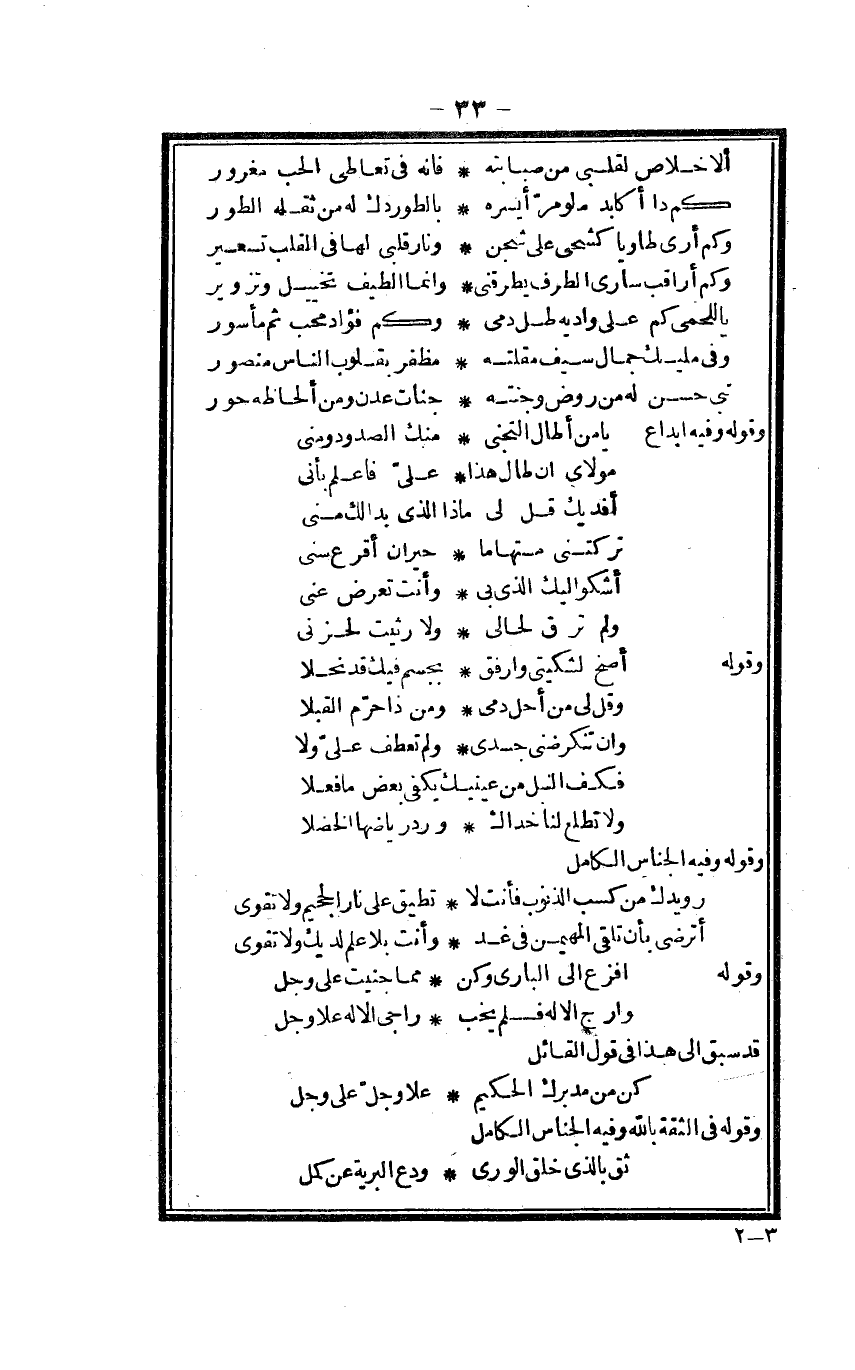 - ٣٣ -
ألا خلاص لقلبي من صبابته * فانه في تعاطي الحب مغرور
كم دا أكابد مالو مرّ أيسره * بالطور دك له من ثقله الطور
وكم أرى طاويا كشحي على شجن * ونار قلبي لها في القلب تسعير
وكم أراقب ساري الطرف يطرقني * وانما الطيف تخييل وتزوير
ياللحمى كم على واديه طل دمي * وكم فؤاد محب ثم مأسور
وفي مليك جمال سيف مقلته * مظفر بقلوب الناس منصور
نبي حسن له من روض وجنته * جنات عدن ومن ألحاظه حور
وقوله وفيه ابداع يامن أطال التجني * منك الصدود ومني
مولاي ان طال هذا * عليّ فاعلم بأني
أفديك قل لي ماذا الذي بدا لك مني
تركتني مستهاما * حيران أقرع سني
أشكو اليك الذي بي * وأنت تعرض عني
ولم ترق لحالي * ولا رثيت لحزني
وقوله أصخ لشكيتي وارفق * بجسم فيك قد نحلا
وقل لي من أحل دمي * ومن ذا حرّم القبلا
وان تنكر ضني جسدي * ولم تعطف عليّ ولا
فكف النبل من عينيك يكفي بعض مافعلا
ولا تطلع لنا خداك * ورد رياضها الخضلا
وقوله وفيه الجناس الكامل
رويدك من كسب الذنوب فأنت لا * تطيق على نار الجحيم ولا تقوى
أترضى بأن تلقى المهيمن في غد * وأنت بلا علم لديك ولا تقوى
وقوله افزع الى الباري وكن * مما جنيت على وجل
وارج الاله فلم يخب * راجي الاله علا وجل
قد سبق الى هذا في قول القائل
كن من مدبرك الحكيم * علا وجلّ على وجل
وقوله في الثقة بالله وفيه الجناس الكامل
ثق بالذي خلق الورى * ودع البرية عن كمل
٣-٢